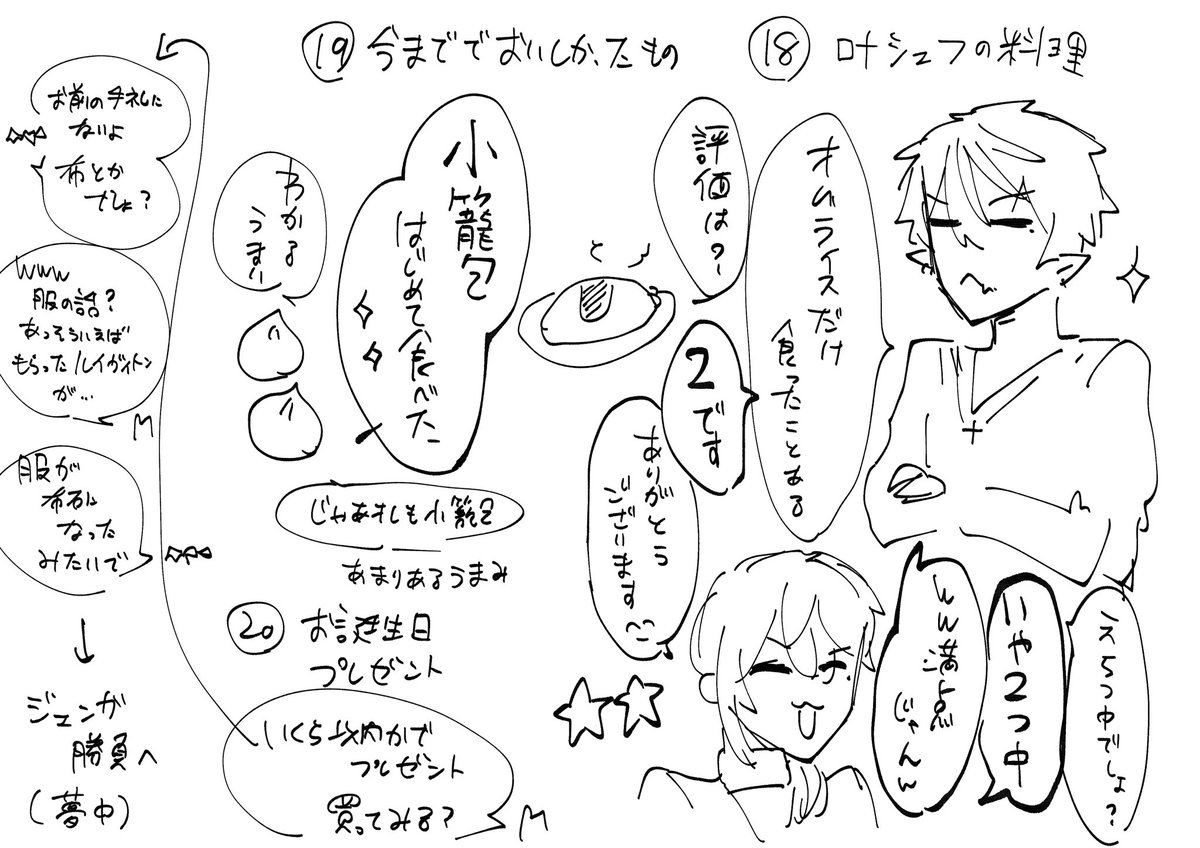 ⑱ 叶シェフの料理
オムライスだけ
食ったことある
評価は?
2です
ありがとう
ございます
え5つ中でしょ?
いや2つ中
ww満点
じゃんw
⑲ 今まででおいしかったもの
小籠包
はじめて食べた
わかる
うまい
じゃあオレも小籠包
あまりあるうまみ
⑳ お誕生日
プレゼント
いくら以内かで
プレゼント
買ってみる?
M
お前の手札に
ないよ
布とか
でしょ?
www
服の話?
あっそういえば
もらったルイヴィトン
が…
M
服が
布石に
なった
みたいで
↓
ジュンが
勝負へ
(夢中)